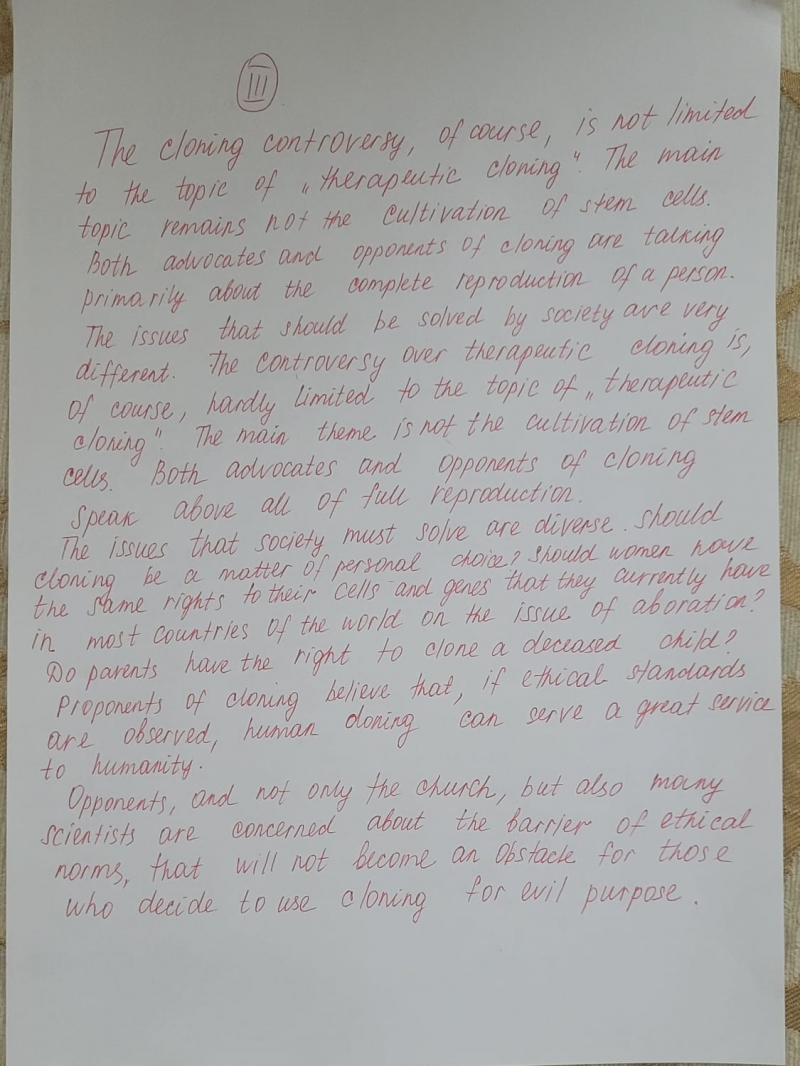 III
The cloning controversy, of course, is not limited
to the topic of „therapeutic cloning". The main
topic remains not the cultivation of stem cells.
Both advocates and opponents of cloning are talking
primarily about the complete reproduction of a person.
The issues that should be solved by society are very
different. The controversy over therapeutic cloning is,
of course, hardly limited to the topic of „therapeutic
cloning". The main theme is not the cultivation of stem
cells. Both advocates and opponents of cloning
speak above all of full reproduction.
The issues that society must solve are diverse. Should
cloning be a matter of personal choice? Should women have
the same rights to their cells and genes that they currently have
in most countries of the world on the issue of aboration?
Do parents have the right to clone a deceased child?
Proponents of cloning believe that, if ethical standards
are observed, human cloning can serve a great service
to humanity.
Opponents, and not only the church, but also many
scientists are concerned about the barrier of ethical
norms, that will not become an obstacle for those
who decide to use cloning for evil purpose.